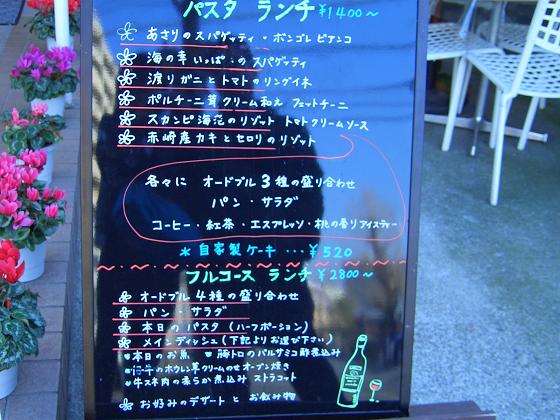 パスタ ランチ ¥1400〜
あさりのスパゲッティ・ボンゴレビアンコ
海の幸いっぱいのスパゲッティ
渡りガニとトマトのリングイネ
ポルチーニ茸クリーム和え フェットチーニ
スカンピ海老のリゾット トマトクリームソース
赤崎産カキとセロリのリゾット
各々に オードブル3種の盛り合わせ
パン・サラダ
コーヒー・紅茶・エスプレッソ・桃の香りアイスティー
*自家製ケーキ・・・¥520
フルコース ランチ ¥2800〜
オードブル4種の盛り合わせ
パン・サラダ
本日のパスタ(ハーフポーション)
メインディッシュ(下記よりお選び下さい)
本日のお魚 豚トロのバルサミコ酢煮込み
牛のホウレン草クリームのせオーブン焼き
牛スネ肉の柔らか煮込み ストラコット
お好みのデザートとお飲み物